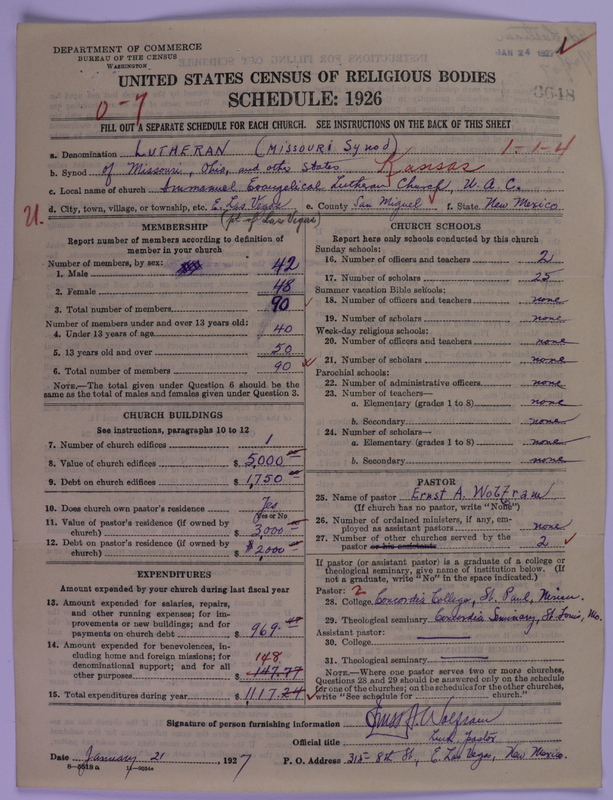 DEPARTMENT OF COMMERCE
BUREAU OF THE CENSUS
WASHINGTON
JAN 24 1927
UNITED STATES CENSUS OF RELIGIOUS BODIES
SCHEDULE: 1926
0-7
3648
FILL OUT A SEPARATE SCHEDULE FOR EACH CHURCH. SEE INSTRUCTIONS ON THE BACK OF THIS SHEET
a. Denomination LUTHERAN (MISSOURI Synod) 1-1-4
b. Synod of Missouri, Ohio, and other States Kansas
c. Local name of church Immanuel Evangelical Lutheran Church, U.A.C.
d. City, town, village, or township, etc. E. Las Vegas e. County San Miguel f. State New Mexico
U. (pt of Las Vegas)
MEMBERSHIP
Report number of members according to definition of
member in your church
Number of members, by sex:
1. Male 42
2. Female 48
3. Total number of members 90
Number of members under and over 13 years old:
4. Under 13 years of age 40
5. 13 years old and over 50
6. Total number of members 90
NOTE.—The total given under Question 6 should be the
same as the total of males and females given under Question 3.
CHURCH BUILDINGS
See instructions, paragraphs 10 to 12
7. Number of church edifices 1
8. Value of church edifices $ 5,000
9. Debt on church edifices $ 1,750
10. Does church own pastor's residence Yes
(Yes or No)
11. Value of pastor's residence (if owned by
church) $ 3,000
12. Debt on pastor's residence (if owned by
church) $ 2,000
EXPENDITURES
Amount expended by your church during last fiscal year
13. Amount expended for salaries, repairs,
and other running expenses; for im-
provements or new buildings; and for
payments on church debt $ 969.
14. Amount expended for benevolences, in-
cluding home and foreign missions; for
denominational support; and for all 148
other purposes $ 147.77
15. Total expenditures during year $ 1117.24
CHURCH SCHOOLS
Report here only schools conducted by this church
Sunday schools:
16. Number of officers and teachers 2
17. Number of scholars 25
Summer vacation Bible schools:
18. Number of officers and teachers none
19. Number of scholars none
Week-day religious schools:
20. Number of officers and teachers none
21. Number of scholars none
Parochial schools:
22. Number of administrative officers none
23. Number of teachers—
a. Elementary (grades 1 to 8) none
b. Secondary none
24. Number of scholars—
a. Elementary (grades 1 to 8) none
b. Secondary none
PASTOR
25. Name of pastor Ernst A. Wolfram
(If church has no pastor, write "None")
26. Number of ordained ministers, if any, em-
ployed as assistant pastors none
27. Number of other churches served by the
pastor or his assistants 2
If pastor (or assistant pastor) is a graduate of a college or
theological seminary, give name of institution below. (If
not a graduate, write "No" in the space indicated.)
Pastor: 2
28. College Concordia College, St. Paul, Minn.
29. Theological seminary Concordia Seminary, St. Louis, Mo.
Assistant pastor:
30. College
31. Theological seminary
NOTE.—Where one pastor serves two or more churches,
Questions 28 and 29 should be answered only on the schedule
for one of the churches; on the schedules for the other churches,
write "See schedule for church."
Signature of person furnishing information Ernst A. Wolfram
Official title Luth. pastor
Date January 21, 1927 P. O. Address 315- 8th St., E. Las Vegas, New Mexico.